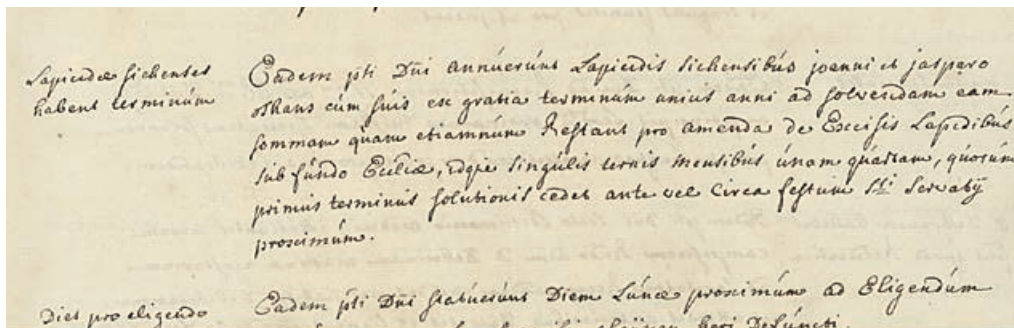 Lapicidae sichenses
habent terminum
Eadem pñti Dñi annuerunt Lapicidis sichensibus joanni et jaspar o
sthans cum suis ex gratia terminum unius anni ad solvendam eam
sommam quam etiamnum Restant pro amenda de Excisis Lapidibus
sub fundo Eccliæ, idque singulis ternis mensibus unam quartam, quorum
primus terminus solutionis cedet ante vel circa festum Sti Servatij
proximum.
Dies pro eligendo
Eadem pñti Dñi statuerunt Diem Lunæ proximum ad Eligendum
heri Defuncti.